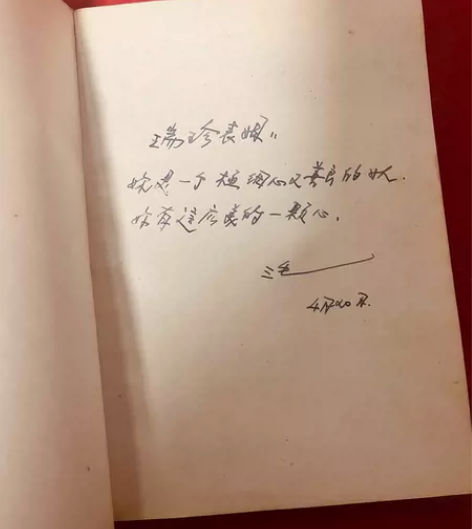 瑞珍表嫂：
妳是一个極細心又善良的女人.
妳有這麽美的一颗心.
三毛
4月20日.